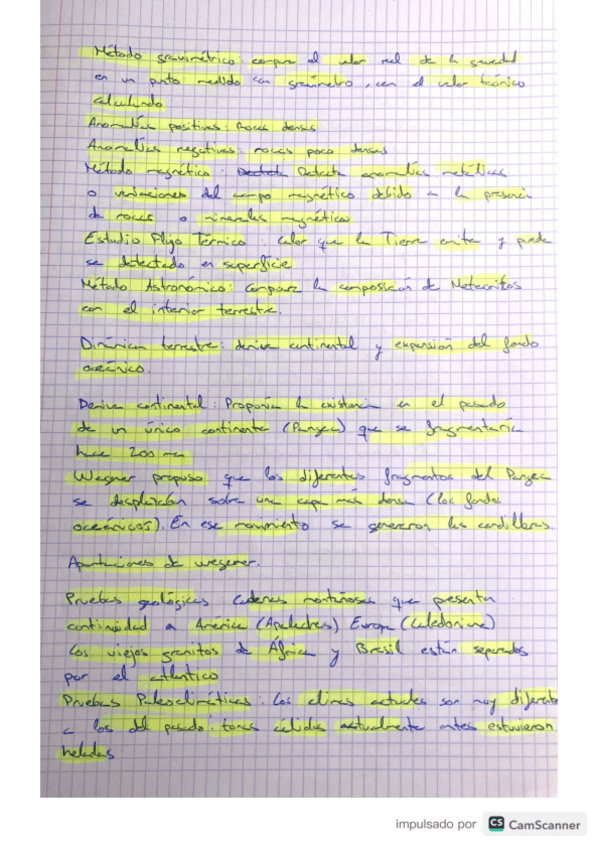 Método gravimétrico: compara el valor real de la gravedad
en un punto medido con gravímetro, con el valor teórico
calculando
Anomalías positivas: Rocas densas
Anomalías negativas: rocas poco densas
Método magnético: Detecta Detecta anomalías metálicas
o variaciones del campo magnético debido a la presencia
de rocas o minerales magnéticos
Estudio Flujo Térmico: Calor que la Tierra emite y puede
se detectado en superficie
Método Astronómico: Compara la composición de Meteoritos
con el interior terrestre.
Dinámica terrestre: deriva continental y expansión del fondo
oceánico.
Deriva continental: Proponía la existencia en el pasado
de un único continente (Pangea) que se fragmentaría
hace 200 ma
Wegner propuso que los diferentes fragmentos del Pangea
se desplazaban sobre una capa más densa (los fondos
oceánicos). En ese movimiento se generaron las cordilleras.
Aportaciones de wegener.
Pruebas geológicas: Cadenas montañosas que presentan
continuidad a América (Apalaches) Europa (Caledoniana)
Los viejos granitos de África y Brasil están separados
por el atlantico
Pruebas Paleoclimáticas: Los climas actuales son muy diferentes
a los del pasado: zonas cálidas actualmente antes estuvieron
heladas
impulsado por CS CamScanner